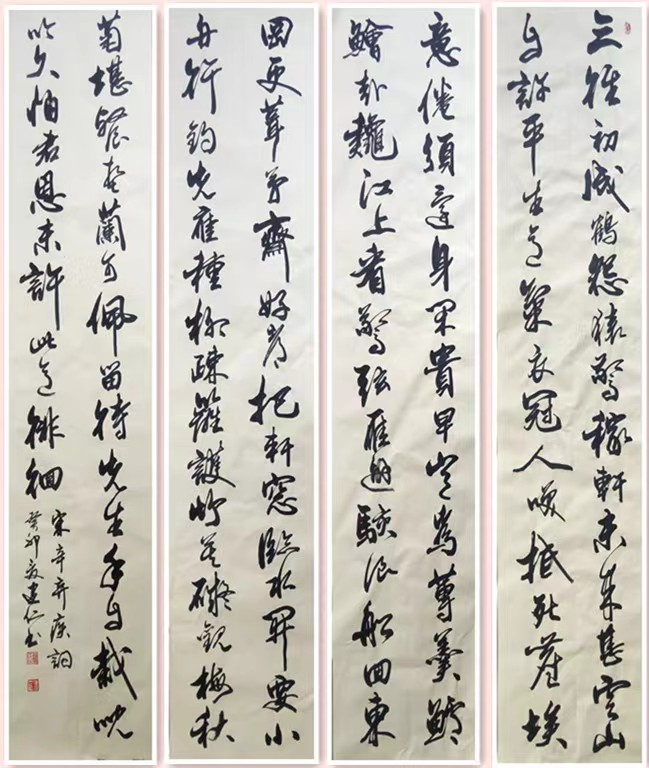 三徑初成鶴怨猿驚稼軒未来甚雲山
自許平生意氣衣冠人笑抵死塵埃
意倦須還身閑貴早豈為蓴羹鱸
鱠哉龝江上看驚弦雁避駭浪船回東
岡更葺茅齋好都把軒窓臨水開要小
舟行釣先應種柳疎籬護竹莫礙觀梅秋
菊堪餐春蘭可佩留待先生手自栽沈
吟久怕君恩未許此意徘徊
宋辛弃疾詞
癸卯夏建仁书